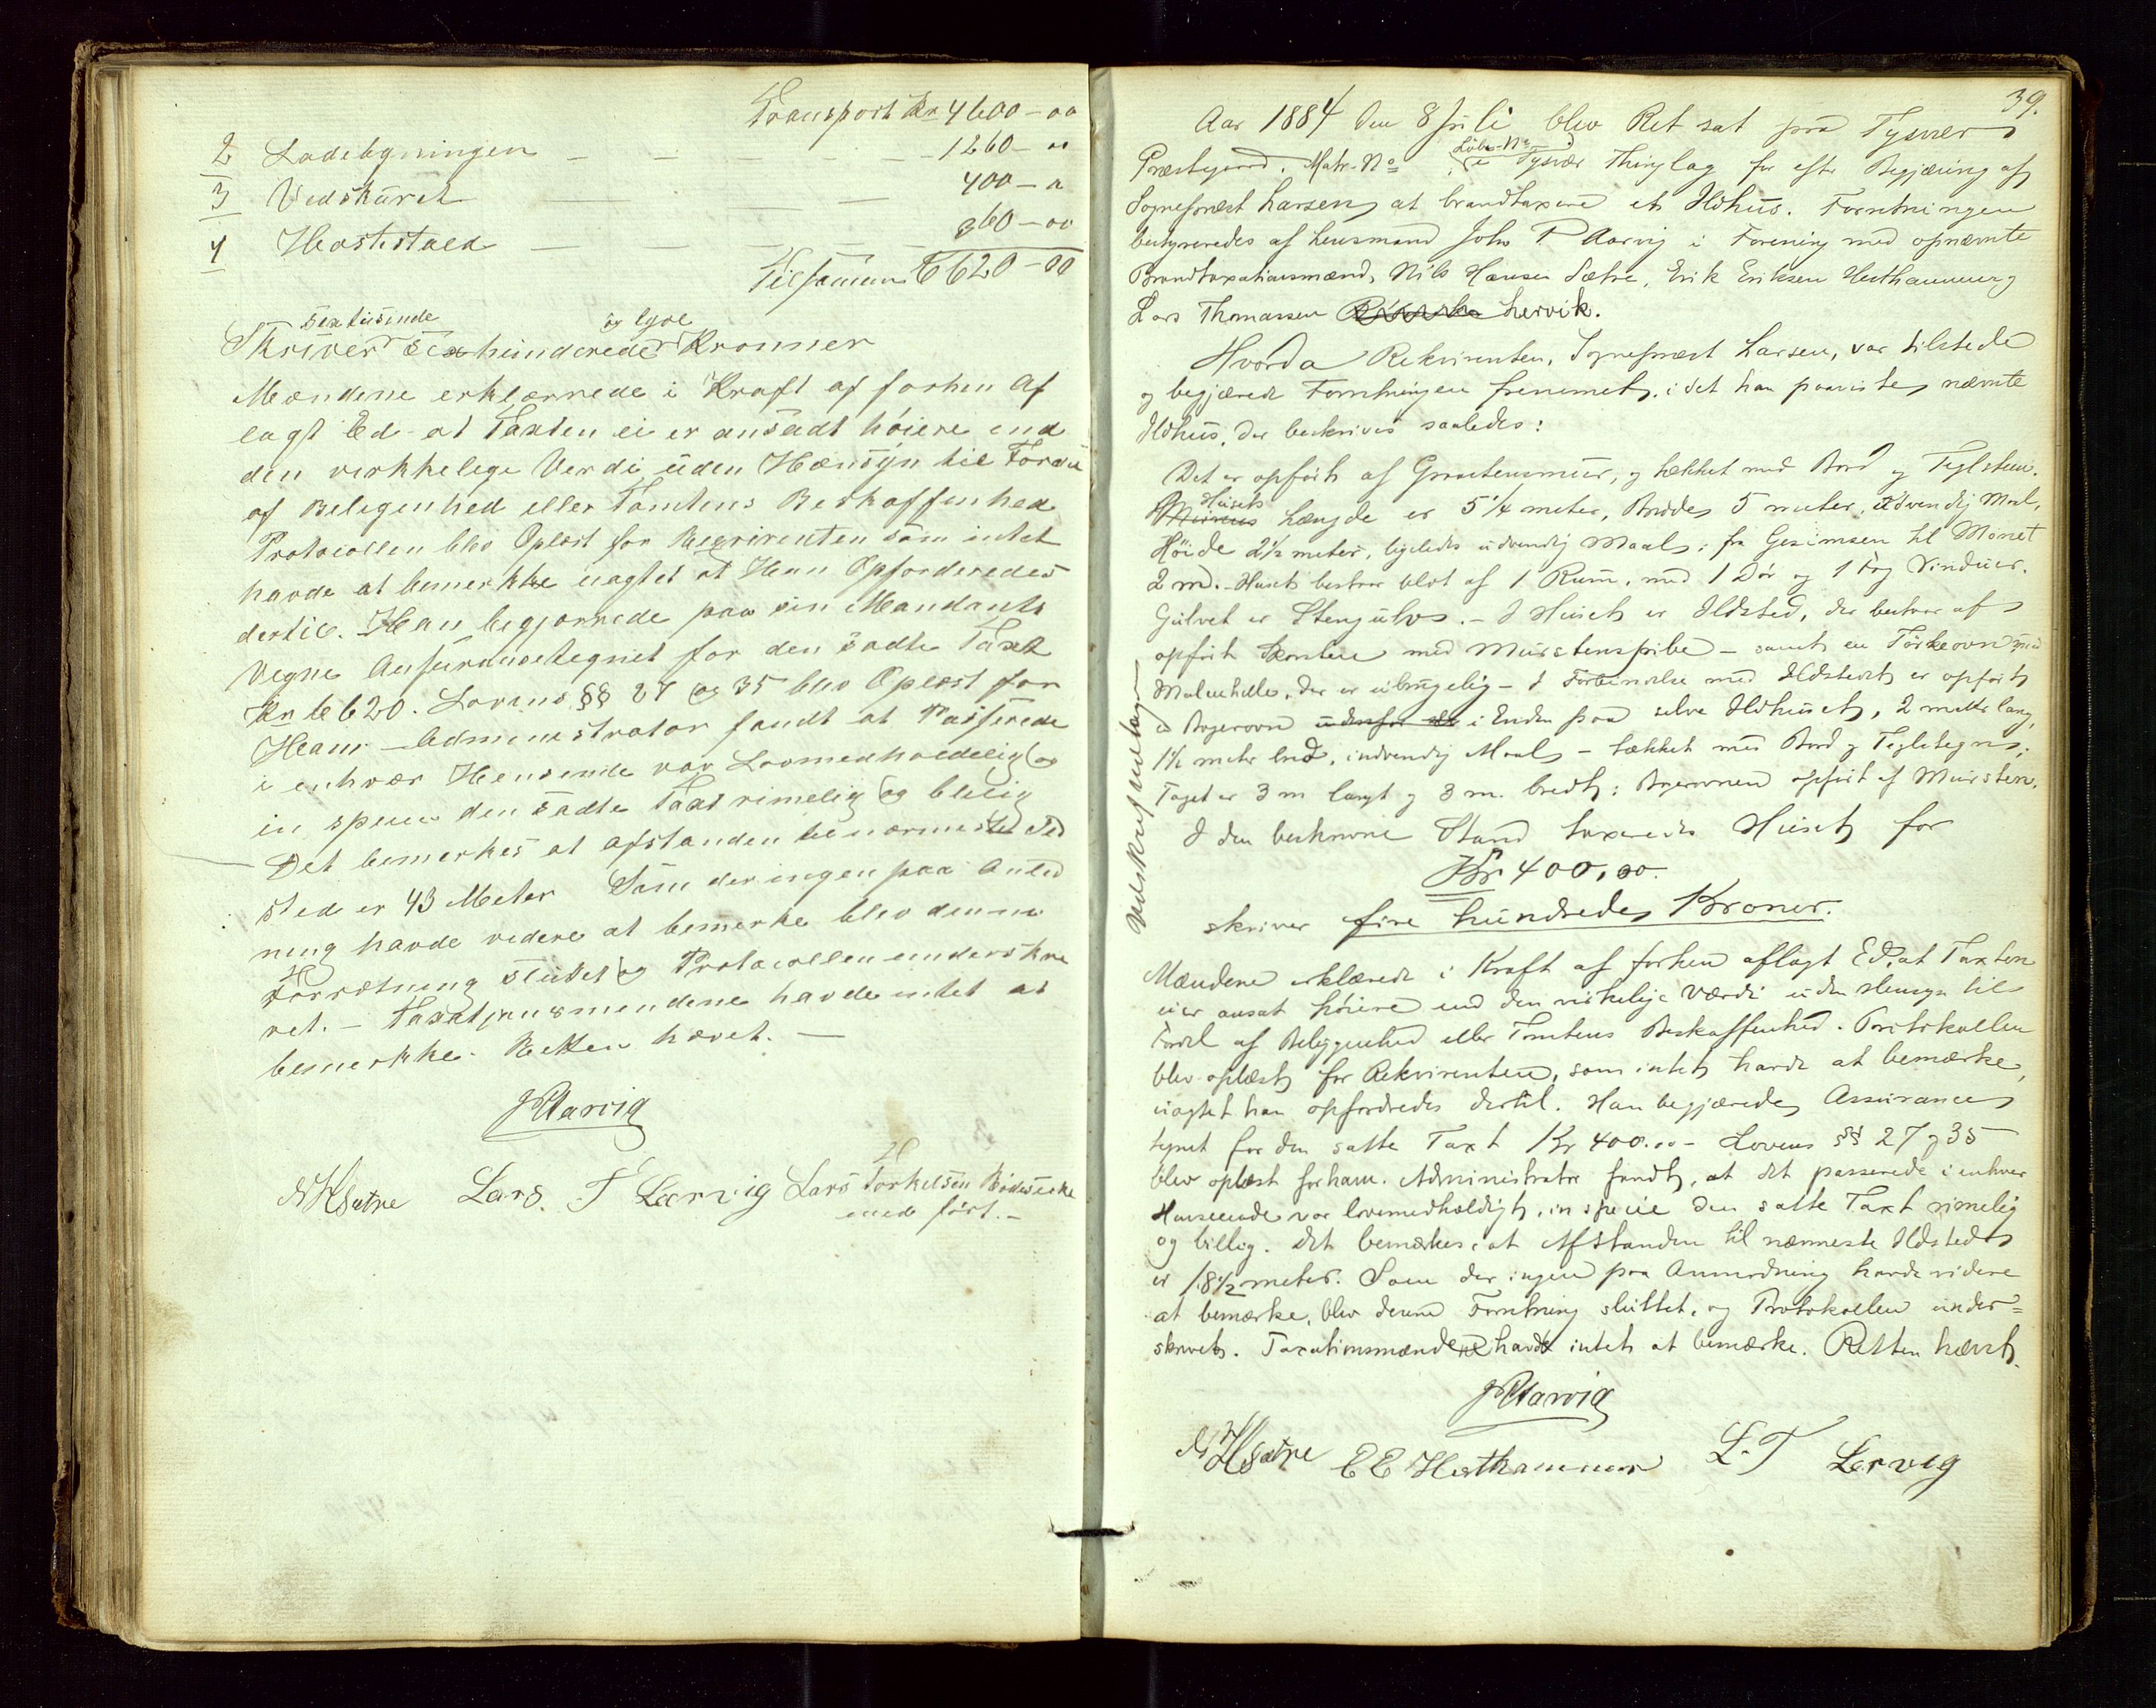 Transport Kr 4600-00
2 Ladebygningen — — — — 1260-00
3 Vedskuret — — 400-00
4 Hestestald — — — 360-00
Tilsammen 6620-00
sextusinde og tyve
Skriver sexhunderede Kronner
Mændene erklærrede i Kraft af forhen Af
lagt Ed at Taxten ei er ansadt høiere end
den virkkelige Verdi uden Hænsyn til Fordel
af Beligenhed eller Tomtens Beskaffenhed
Protocollen blev Oplæst for Reqvirenten som intet
havde at bemerkke uagtet at Han Opforderedes
dertil. Han begjærrede paa sin Mandants
Vegne Ansuransetegnet for den sadte Taxt
Kr 6620. Lovens §§ 27 og 35 blev Oplæst for
Ham. Administrator fandt at Passerede
i enhvær Hensende var Lovmedholdelig og
in speci den sadte Taxt rimelig og billig
Det bemerkes at afstanden til nærmeste Ild
sted er 43 Meter Som der ingen paa Anled
ning havde videre at bemerke blev denne
Forrætning sluttet og Protocollen underskre
vet. — Taxatjonsmendene havde intet at
bemerkke. Retten hævet. —
JPAarvig
NHSætre Lars. T Lærvig Lars Torkelsen
med ført. —
39.
Aar 1884 den 8 Juli blev Ret sat paa Tysvær
Præstegaard, Matr-No Løbe-No i Tysvær Thinglag for efter Begjæring af
Sognepræst Larsen at brandtaxere et Ildhus. Forretningen
bestyreredes af Lensmand John P Aarvig i Forening med opnævnte
Brandtaxationsmænd, Nils Hansen Sætre, Erik Eriksen Hesthammer og
Lars Thomassen Lervik.
Hvorda Rekvirenten, Sognepræst Larsen, var tilstede
og begjærede Forretningen fremmet, i det han paaviste nævnte
Ildhus, der beskrives saaledes:
Det er opført af Graastensmur, og tækket med Bord og Teglsten.
Husets Længde er 5 1/4 meter, Bredde 5 meter, udvendig Maal,
Høide 2 1/2 meter, ligeledes udvendig Maal; fra Gesimsen til Mønet
2 m. Huset bestaar blot af 1 Rum, med 1 Dør og 1 Fag Vinduer.
Gulvet er Stengulv. — I Huset er Ildsted, der bestaar af
opført Skorsten med Murstenspibe — samt en Tørkeovn med
Malmhelle, der er ubrugelig — I Forbindelse med Ildstedet er opført
en Bagerovn udenfor i Enden paa selve Ildhuset, 2 meter lang,
1 1/2 meter bred, indvendig Maal — tækket med Bord og Tegltag;
Taget er 3 m langt og 3 m. bredt; Bagerovnen opført af Mursten.
I den beskrevne Stand taxeredes Huset for
Kr 400,00.
skriver fire hundrede Kroner.
Mændene erklærede i Kraft af forhen aflagt Ed, at Taxten
ei er ansat høiere end den virkelige Værdi uden Hensyn til
Fordel af Beliggenhed eller Tomtens Beskaffenhed. Protokollen
blev oplæst for Rekvirenten, som intet havde at bemærke,
uagtet han opfordredes dertil. Han begjærede Assurance
tegnet for den satte Taxt Kr 400.00 — Lovens §§ 27 og 35
blev oplæst for ham. Administrator fandt, at det passerede i enhver
Henseende var lovmedholdigt, in specie den satte Taxt rimelig
og billig. Det bemærkes, at Afstanden til nærmeste Ildsted
er 18 1/2 meter. Som der ingen paa Anmodning havde videre
at bemærke, blev denne Forretning sluttet, og Protokollen under=
skrevet. Taxationsmændene havde intet at bemærke. Retten hævet.
JPAarvig
NHSætre EE Hesthammer L. T Lervig